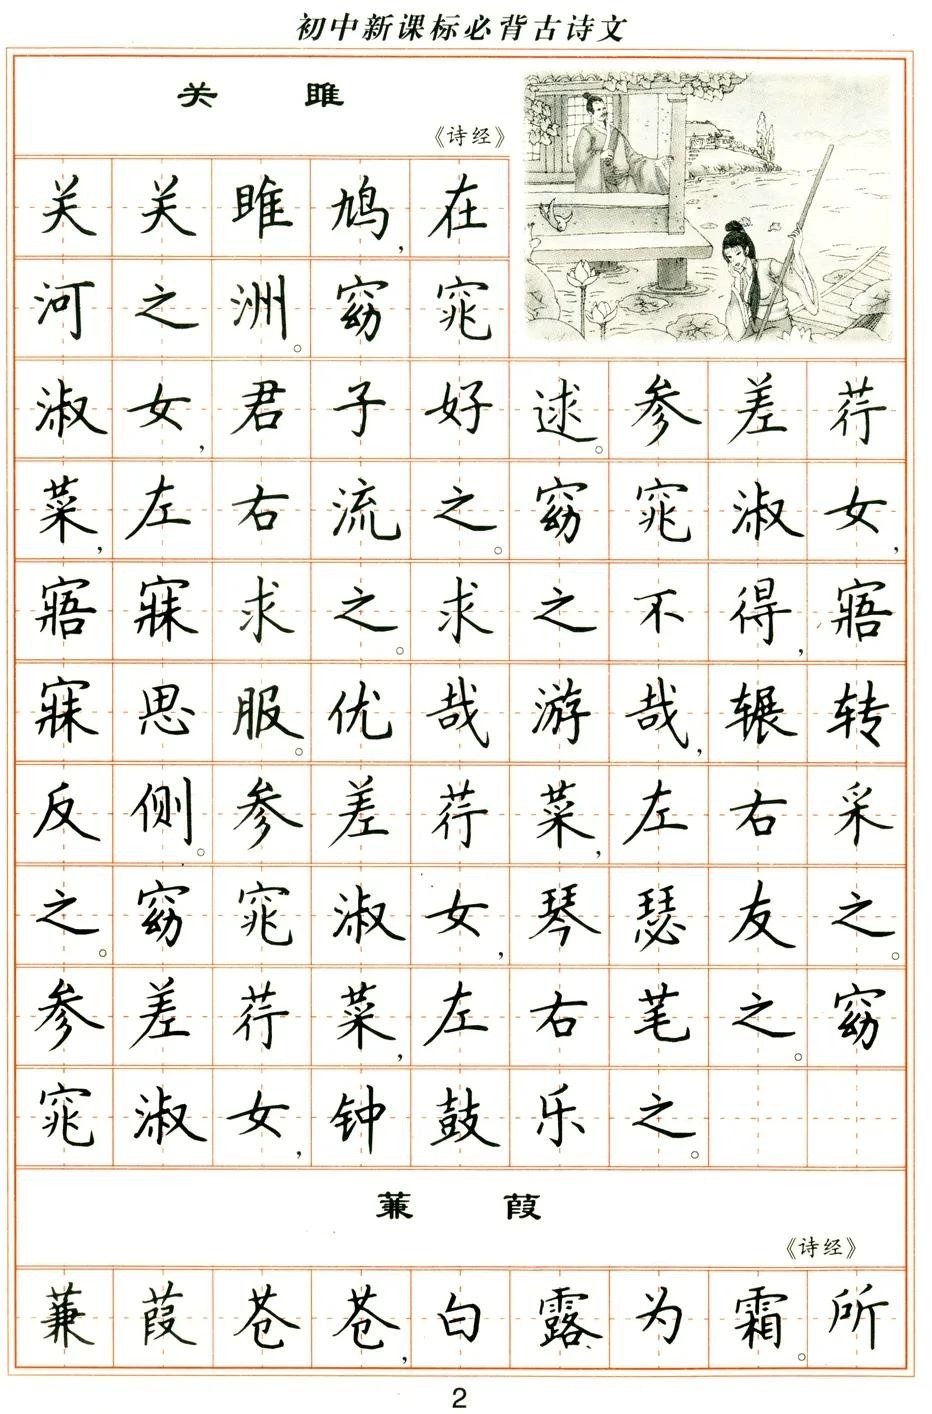 初中新课标必背古诗文
关雎
《诗经》
关关雎鸠,在
河之洲。窈窕
淑女,君子好逑。参差荇
菜,左右流之。窈窕淑女,
寤寐求之。求之不得,寤
寐思服。优哉游哉,辗转
反侧。参差荇菜,左右采
之。窈窕淑女,琴瑟友之。
参差荇菜,左右芼之。窈
窕淑女,钟鼓乐之。
蒹葭
《诗经》
蒹葭苍苍,白露为霜。所
2